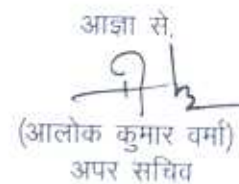 आज्ञा से,
(आलोक कुमार वर्मा)
अपर सचिव